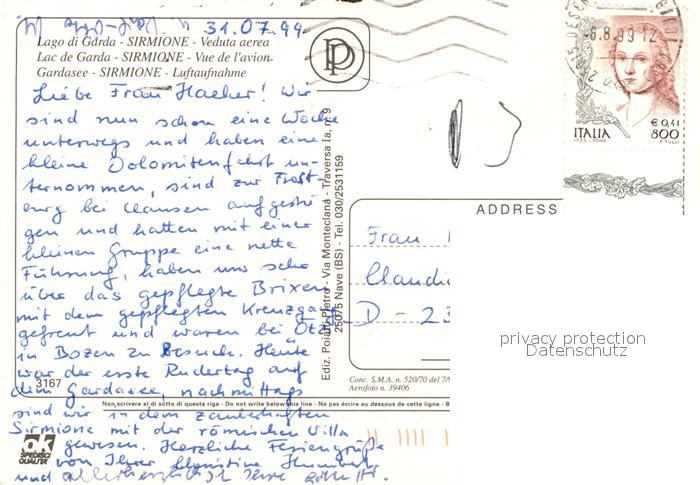 31.07.99
Lago di Garda - SIRMIONE - Veduta aerea
Lac de Garda - SIRMIONE - Vue de l'avion
Gardasee - SIRMIONE - Luftaufnahme
Liebe Frau Haeker! Wir
sind nun schon eine Woche
unterwegs und haben eine
kleine Dolomitenfahrt un-
ternommen, sind zur Trost-
burg bei Klausen aufgestie
gen und hatten mit einer
kleinen Gruppe eine nette
Führung, haben uns sehr
über das gepflegte Brixen
mit dem gepflegten Kreuzgang
gefreut und waren bei Ötzi
in Bozen zu Besuch. Heute
war der erste Rudertag auf
dem Gardasee, nachmittags
sind wir in dem zauberhaften
Sirmione mit der römischen Villa
gewesen. Herzliche Feriengrüße
von Ihrer Christine
und allerherzlichst Ihre
3167
Non scrivere al di sotto di questa riga - Do not write below this line - Ne pas écrire au dessous de cette ligne - B
ok
SPEDRCI
QUALITA'
Ediz. Poiatti Pietro - Via Monteclana - Traversa Ia, n. 9
25075 Nave (BS) - Tel. 030/2531159
PD
-6.8.99 12
ITALIA
€ 0,41
800
I.P.Z.S. - ROMA
F. TULLI
ADDRESS
Frau
Claudi
D - 23
Conc. S.M.A. n. 520/70 del 7/
Aerofoto n. 39406
privacy protection
Datenschutz